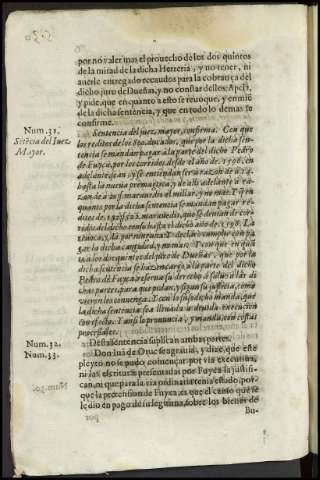 por no valer mas el prouecho de los dos quintos
de la mitad de la dicha Herreria, y no tener, ni
auerle entregado recaudos para la cobrança del
dicho juro de Dueñas, y no constar dellos. Apela,
y pide, que en quanto a esto se reuoque, y enmiẽ
de la dicha sentencia, y que en todo lo demas se
confirme.
Num. 31.
Sẽtẽcia del Iuez
Mayor.
Sentencia del juez mayor, confirma. Con que
los reditos de los
que por la dicha sen-
tencia se mandan pagar a la parte del dicho Pedro
de Fuyca, por los corridos, desde el año de 1596. en
adelante, sean, y se entiendan ser a razon de a 14.
hasta la nueua prematica, y de alli adelante a ra-
zon de a 20. mil marauedis el millar, y no mas. Y q̃ en
quanto por la dicha sentencia se mandan pagar
ditos de
marauedis, que se deuian de cor-
ridos del dicho censo hasta el dicho año de 1598. La
reuoca, y da por ninguna. Y declara cumplir con pa-
gar la dicha cantidad, y no mas. Y con que en quã
to a los dos quintos del juro de Dueñas, que por la
dicha sentencia se hazen cargo a la parte del dicho
Pedro de Fuyca reserua su derecho a saluo a las di
chas partes, para que pidan, y sigan su justicia, como
vieren les conuenga. Y con lo susodicho manda, que
la dicha sentencia sea lleuada a deuida execucion
con efecto. Y assi lo pronuncia, y manda, con costas
processales.
Num. 32.
Desta sentencia suplican ambas partes.
Num. 33.
Don Iuã de Oruc seagrauia, y dize, que este
pleyto no se pudo començar por via executiua,
ni las escrituras presentadas por Fuyca la justifi-
can, ni que para la via ordinaria tenia estado, por-
que la pretension de Fuyca, es que el censo que se
le dio en pago de su legitima, sobre los bienes de
Bu-